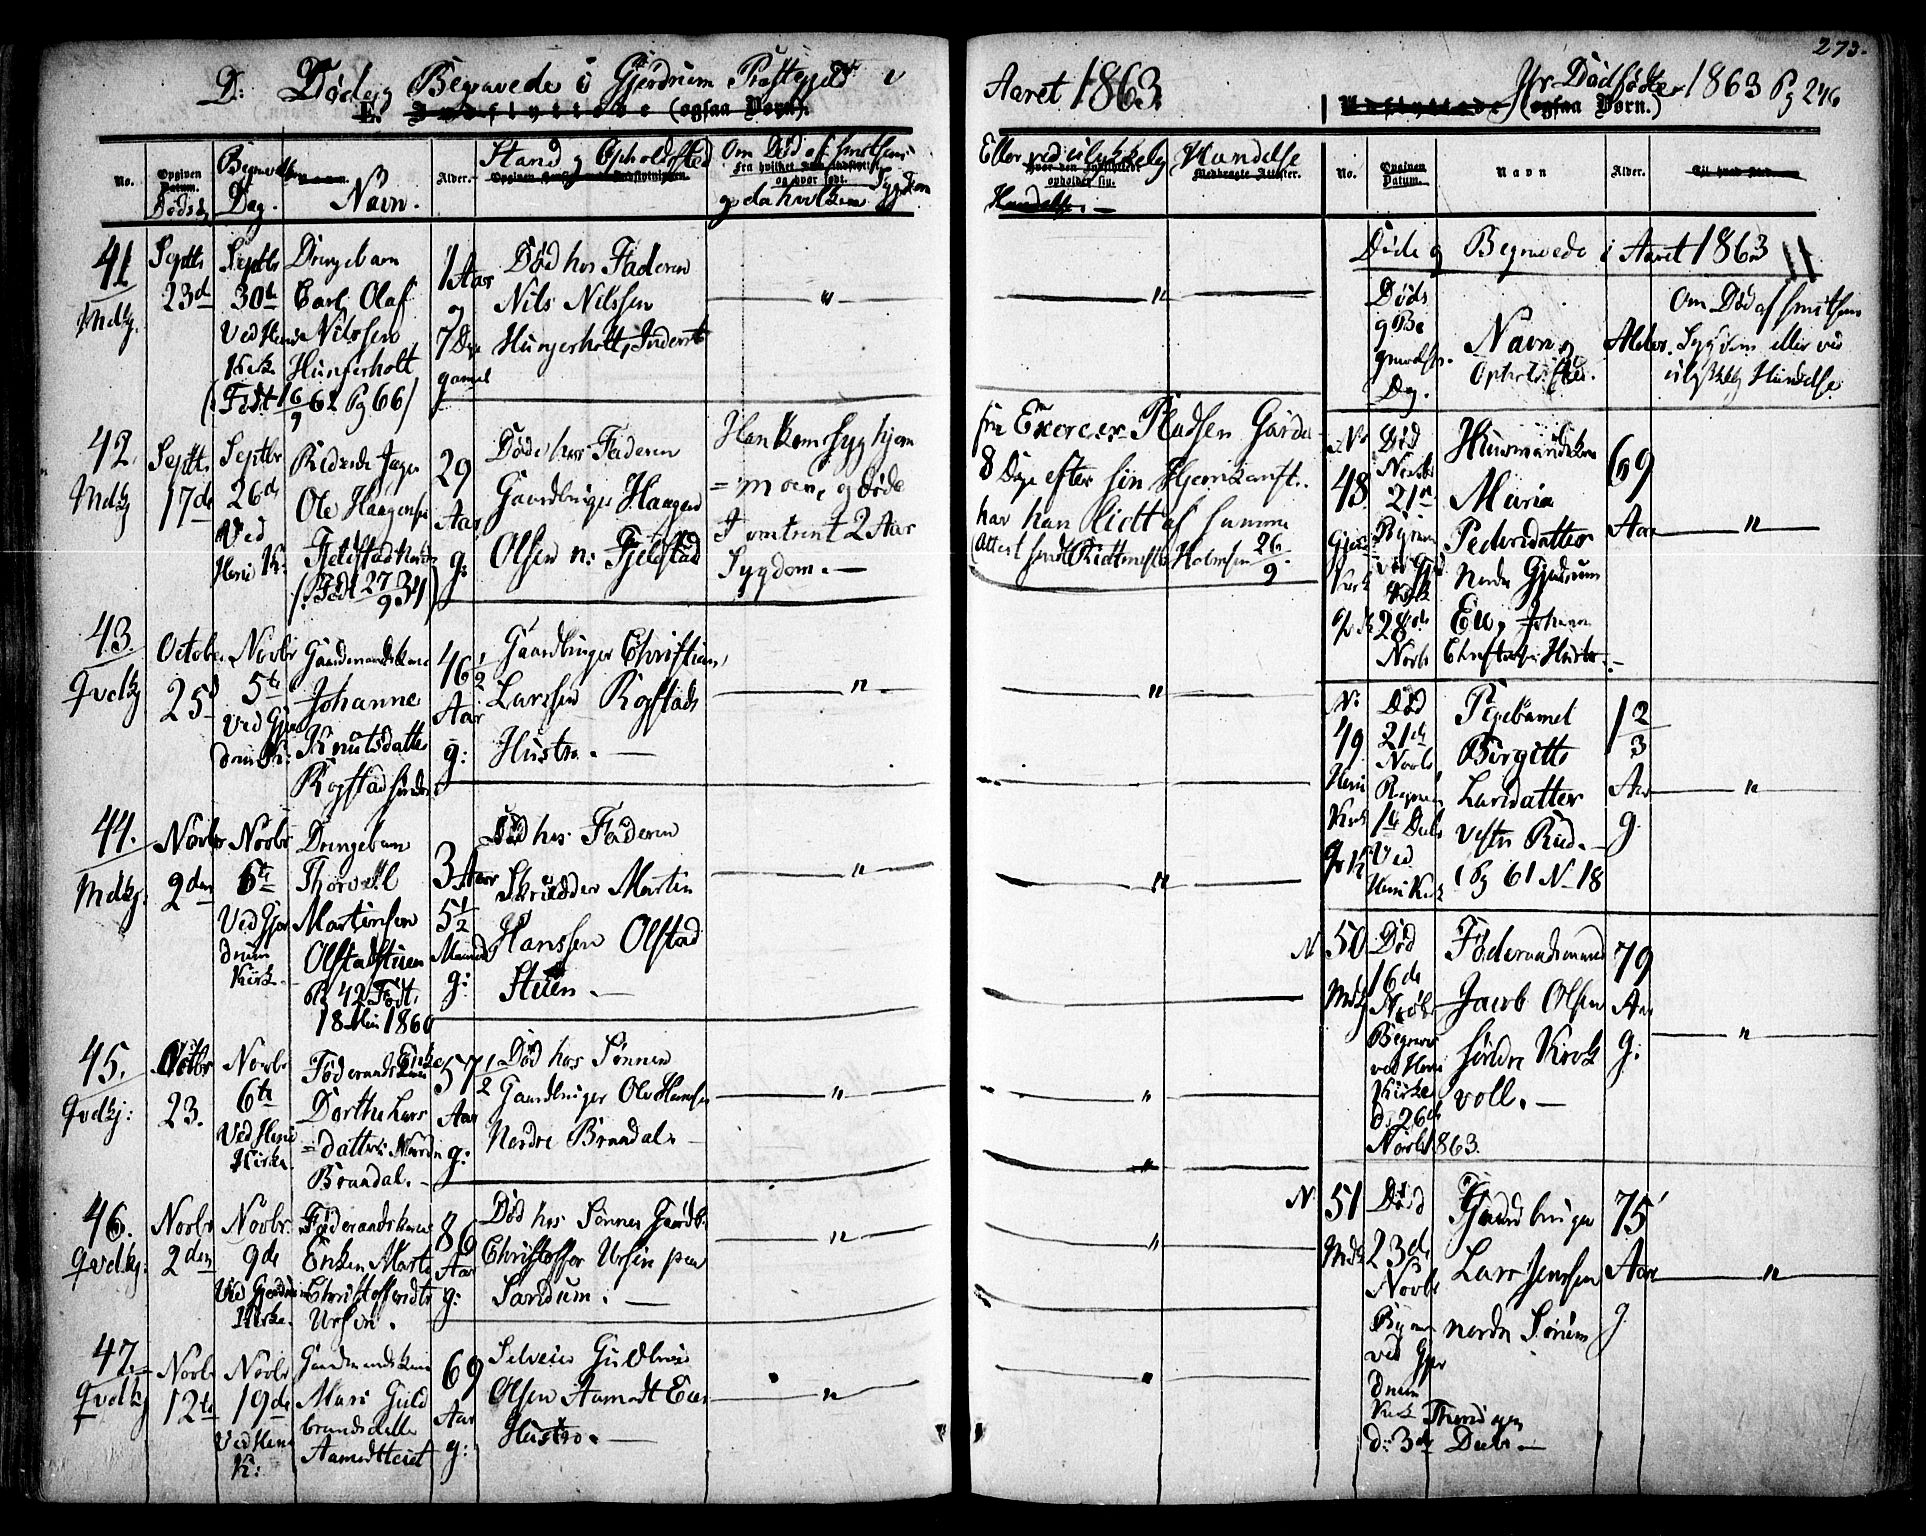 273.
D: Døde og Begravede i Gjerdrum Præstegjeld i
Aaret 1863.
For Dødfødte 1863 Pg 246
E. Indflyttede (ogsaa Børn).
Udflyttede (ogsaa Børn.)
No.
Opgiven Datum.
Døds
Begravelses Dag.
Navn.
Alder.
Stand og Opholdssted
Om Død af smitsom Sygdom
og da hvilken
Eller ved ulykkelig Hændelse
Medbragte Attester.
No.
Opgiven Datum.
Navn
Alder.
41
Mdkj.
Septbr
23de
Septbr
30te
Ved Heni
Kirke
Drengebarn
Carl Olaf
Nilssen
Hungerholt
(Født 16/9 62 Pg 66)
1 Aar
og
7 Dge
gamel
Død hos Faderen
Nils Nilssen
Hungerholt, Inderst
"
"
42.
Mdkj
Septbr
17de
Septbr
26de
Ved
Heni K:
Ridende Jæger
Ole Haagensen
Fjelstad
(: Født 27/9 34)
29
Aar
g:
Døde hos Faderen
Gaardbruger Haagen
Olsen n: Fjelstad
Han kom syg hjem
fra Exercer Pladsen Garder-
= moen, og døde
8 Dage efter sin Hjemkomst.
I omtrent 2 Aar
har han lidt af samme
Sygdom. —
Attest fra Ridtmester Holmsen 26/9.
43.
Qvdkj
October
25d
Novbr
5te
Ved Gjer
drum K:
Gaardmandskone
Johanne
Knutsdatter
Rogstad søndre
46 1/2
Aar
g:
Gaardbruger Christian
Larssen Rogstads
Hustro. —
"
"
44.
Mdkj:
Novbr
2den
Novbr
6te
Ved Gjer
drum
Kirke.
Drengebarn
Thorvall
Martinsen
Olstadstuen
Pg 42 Født
18 1860
3 Aar
5 1/2
Maaned
g:
Død hos Faderen
Skrædder Martin
Hanssen Olstad
Stuen. —
"
"
45.
Qvdkj:
Octbr
23.
Novbr
6te
Ved Heni
Kirke.
Føderaads Enke
Dorthe Lars
= datter Nordre
Braadal. —
57 1/2
Aar
g:
Død hos Sønnen
Gaardbruger Ole Hansen
Nordre Braadal. —
"
"
46.
Qvdkj:
Novbr
2den
Novbr.
9de
Ved Gjerdrum
Kirke.
Føderaadskone
Enken Marte
Christoffersdtr
Ursin.
86
Aar
g:
Død hos Sønnen Gaardb.
Christoffer Ursin paa
"
"
47.
Qvdkj
Novbr
12te
Novbr
19de
Ved Heni
K:
Gaardmandskone
Mari Guld
brandsdatter
Aamodt
69
Aar
g:
Selveier Guldbrand
Olsen Aamodt Eie
Hustro. —
"
Døde og Begravede i Aaret 1863
Døds
og Be
gravelses.
Dag.
Navn og
Opholdssted.
Alder.
Om Død af smitsom
Sygdom eller ved
ulykkelig Hændelse
No
48
Gjerd
Kirk
Qvk
Død
Novbr
21de
Begraven
ved Gjd
Kirk
28de
Novbr
Husmandskone
Maria
Pedersdatter
nordre Gjerdrum
Eie, Johan
Christophersens Hustro. —
69
Aar
"
No
49
Heni
Kirk
Qvk
Død
21de
Novbr
Begraven
1ste Decbr
Ved
Heni Kirk
Pigebarnet
Birgitte
Larsdatter
vestre Rud. —
(Pg 61 N 18
1 2/3
Aar
g.
"
N 50
Mdkj
Død
16de
Novbr
Begraven
ved Heni
Kirke
D: 26de
Novbr 1863.
Føderaadsmand
Jacob Olsen
søndre Kirk
voll. —
79
Aar
g:
"
N. 51
Mdkj
Død
23de
Novbr
Begraven
ved Gjer
drum
Kirk
d: 3de Decbr —
Gaardbruger
Lars Jenssen
nordre Sørum
75
Aar
g.
"